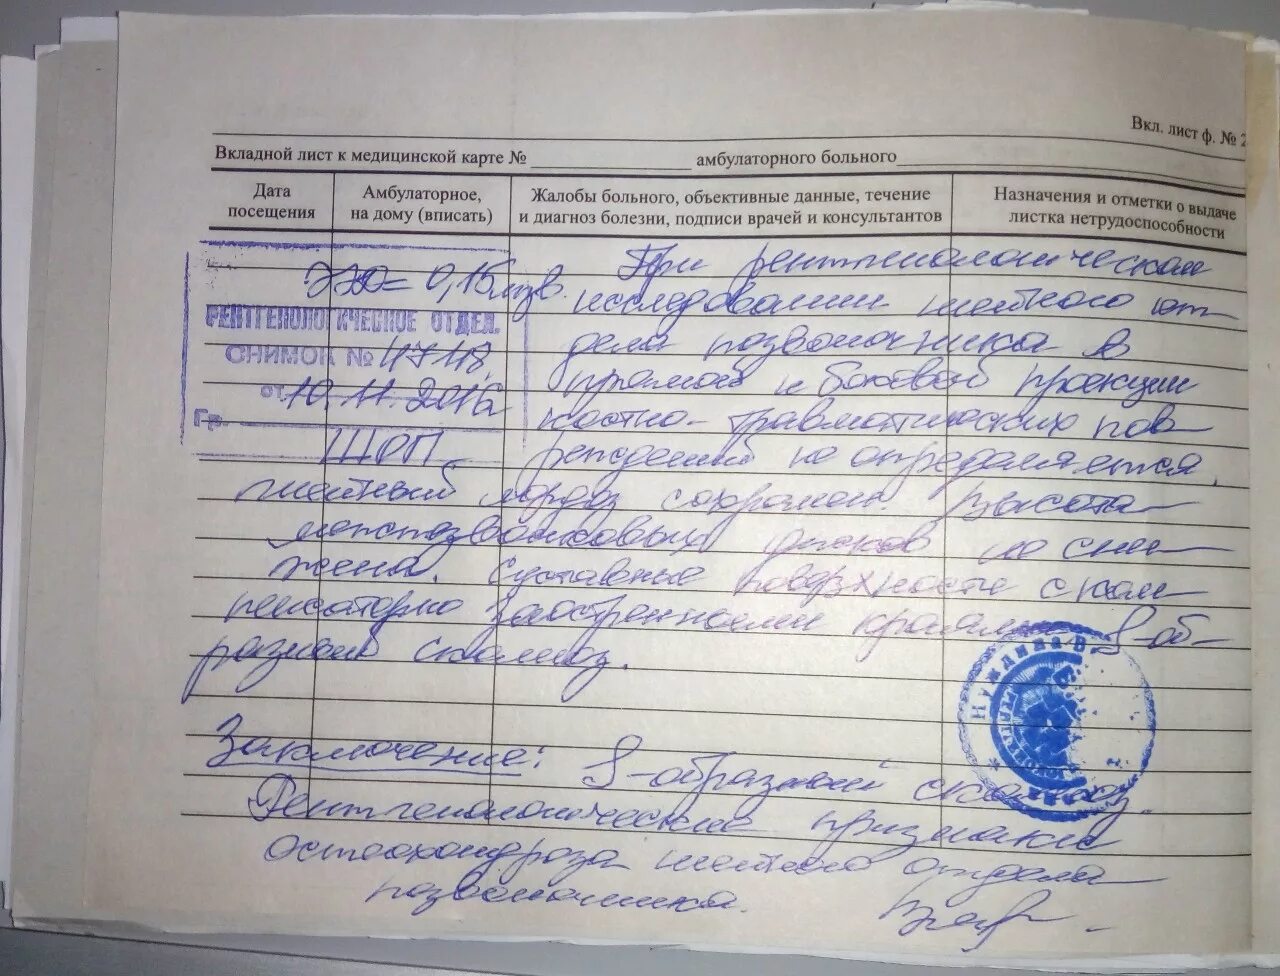 Вкл. лист ф. № 2
Вкладной лист к медицинской карте № амбулаторного больного
Дата посещения
Амбулаторное, на дому (вписать)
Жалобы больного, объективные данные, течение и диагноз болезни, подписи врачей и консультантов
Назначения и отметки о выдаче листка нетрудоспособности
ЭЭД = 0,15 мзв.
РЕНТГЕНОЛОГИЧЕСКОЕ ОТДЕЛ.
СНИМОК № 4748
от 10.11.2016
Гр.
ШОП
При рентгенологическом
исследовании шейного от-
дела позвоночника в
прямой и боковой проекции
костно-травматических пов-
реждений не определяется.
Шейный лордоз сохранен. Высота
межпозвонковых дисков не сни-
жена. Суставные поверхности с ком
пенсаторно заостренными краями. S-об-
разный сколиоз.
Заключение: S-образный сколиоз.
Рентгенологические признаки
остеохондроза шейного отдела
позвоночника.
Нуждина В.